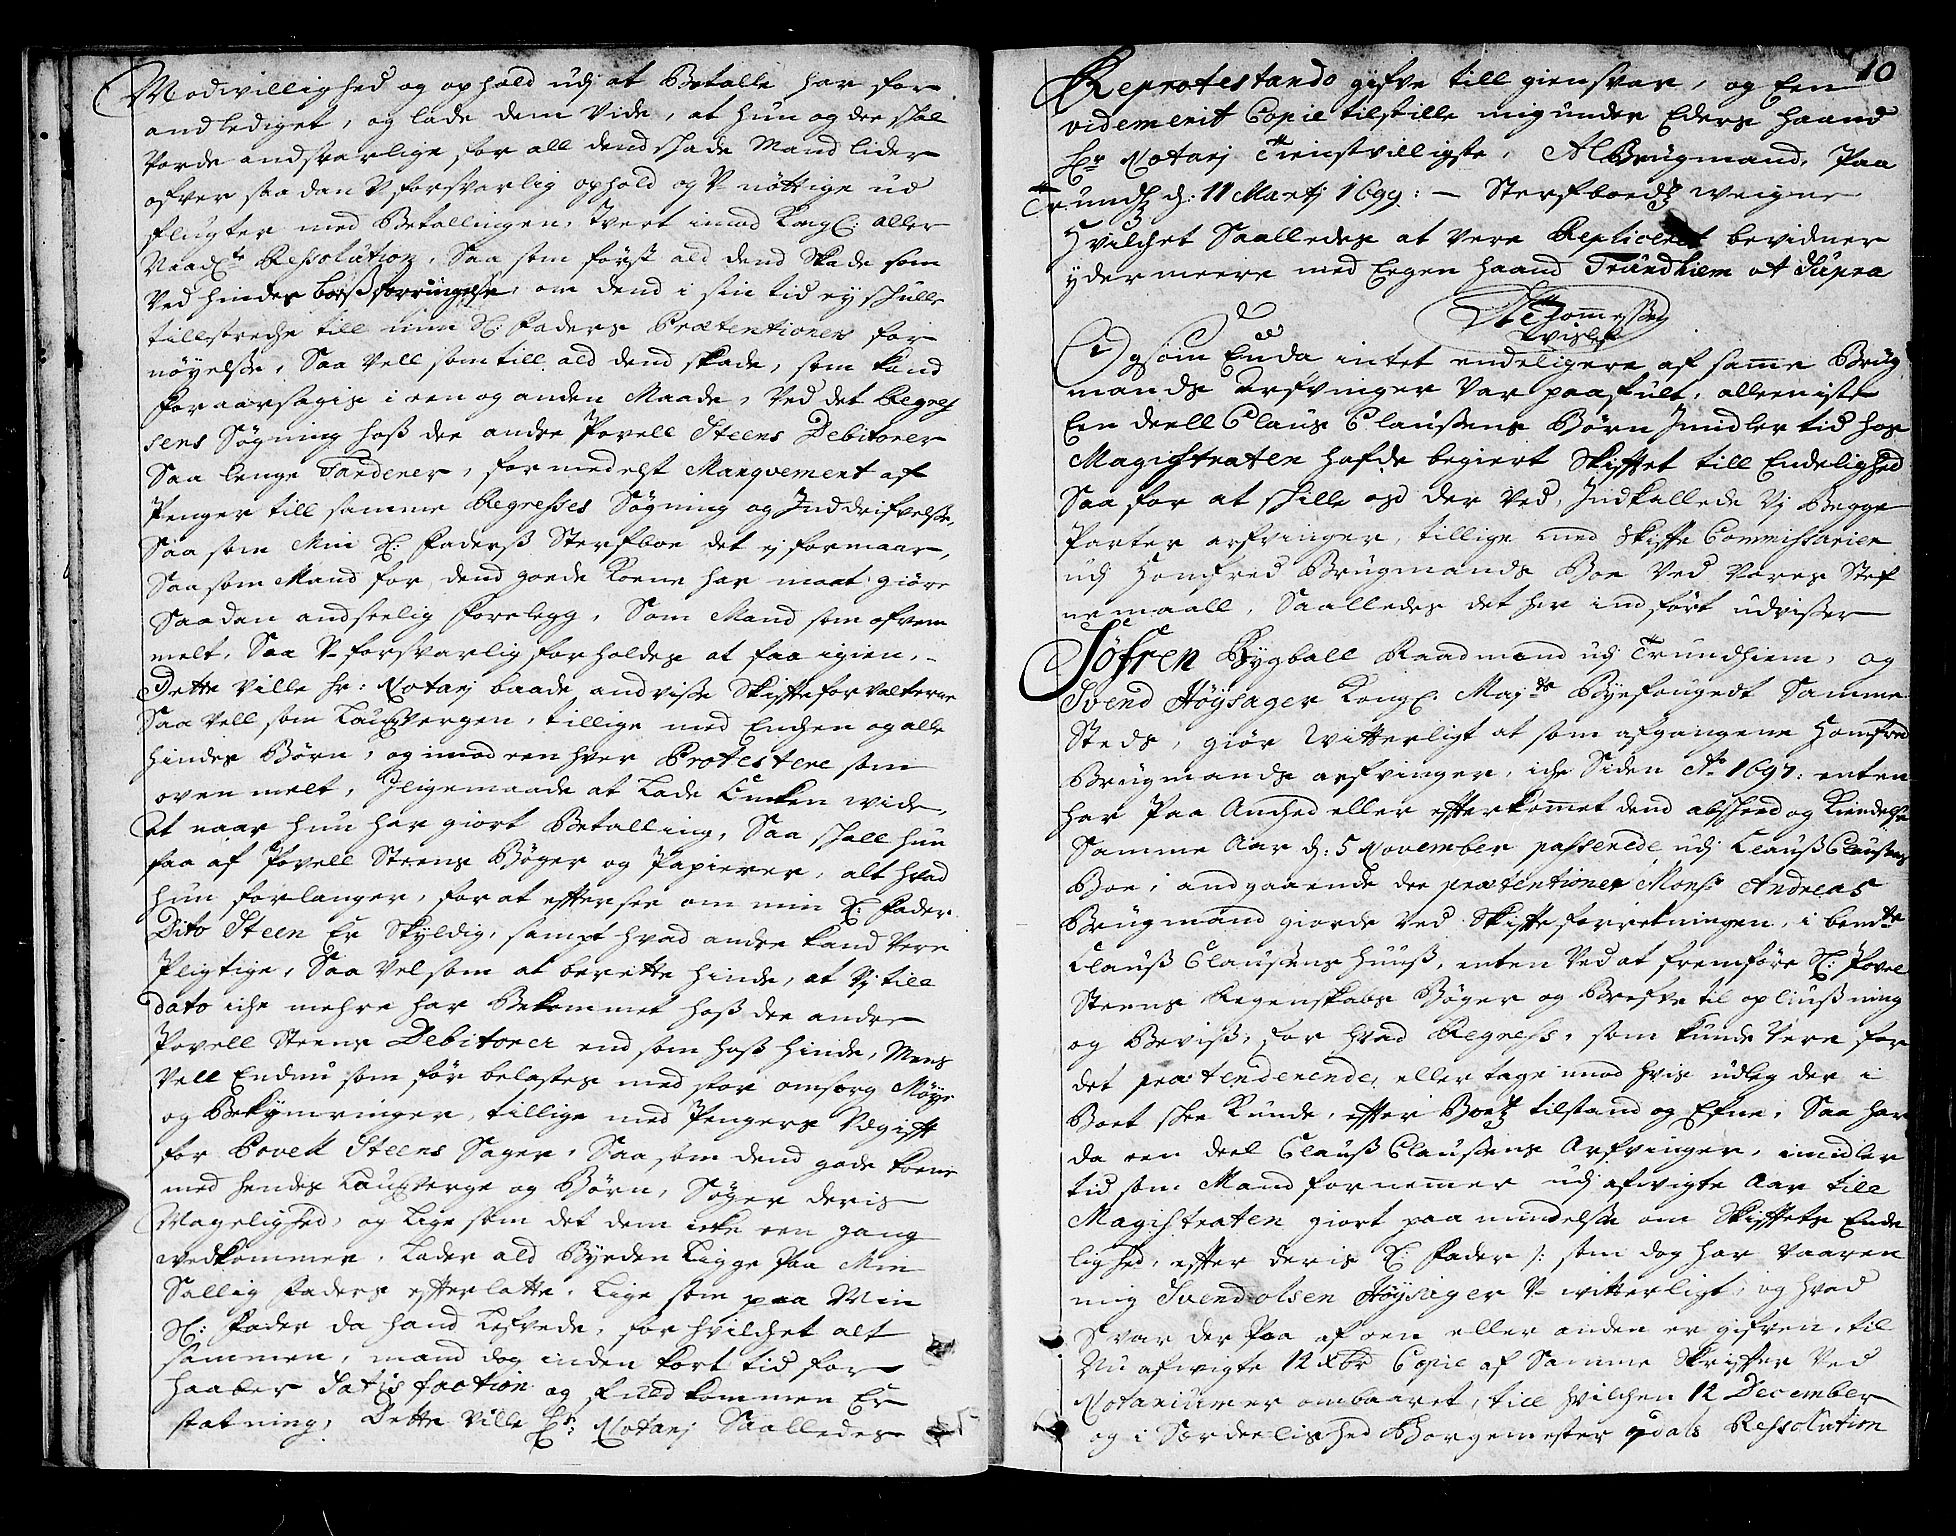 Modwillighed og ophold udj at Betalle har for
andlediget, og lade dem vide, at hun og de skal
vorde andsvarlige for all dend skade Mand lider
ofver saadan U-forsvarlig ophold og U-nöttige ud
flugter med Betallingen, tvert imod Kongl: aller
Naadste Ressolution, Saa som först ald dend skade som
ved hindes boeß forringelse, om dend i sin tid ej skulle
tillstreche till min Sl: Faders Prætentioners for
nöyelse, Saa vell som till ald dend skade, som kand
foraarsagis i een og anden Maade, ved det Regres
sens Sögning hoß de andre Povell Steens Debitorer
Saa lenge Tarderer, formedelst Manqvement af
Penger till samme Regresses Sögning og Inddrifvelse,
Saa som Min Sl: Faderß Sterfboe det ej formaar,
Saa som Mand for dend goede Kone har maat giöre
Saadan andseelig forelegg, Som Mand som ofven
melt, Saa U-forsvarlig forholdes at faa igien,
Dette ville hr: Notarj baade andvisse Skifteforvalterne
Saa vell som Laugvergen, tillige med Enchen og alle
hindes Börn, og imod een hver Protestere som
oven melt, Iligemaade at Lade Encken wide,
At naar hun har giort Betalling, Saa skall hun
faa af Povell Steens Böger og Papierer, alt hvad
hun forlanger, for at eftersee om min Sl: Fader
Dito Steen Er Skyldig, sampt hvad andre kand vere
Pligtige, Saa vel som at berette hinde, at Vj till
dato iche mehre har Bekommet hoß de andre
Povell Steens Debitorer end som hoß hinde, Mens
vell Endnu som för belastes med stor omsorg Möye
og Bekymringer, tillige med Pengers Udgift
for Povell Steens Sager, Saa som dend gode kone
med hendes Laugverge og Börn, Söger deris
Magelighed, og Lige som det dem icke een gang
wedkommer, Lader ald Byrden Ligge Paa Min
Sallig Faders efterlatte, Lige som paa Min
Sl: Fader da hand Lefvede, for hvilchet alt
sammen, mand dog inden kort tid for
haaber Satisfaction og fuldkommen Er
statning, Dette ville Hr: Notarj Saalledes
10
Reprotestando gifve till giensvar, og Een
videmerit Copie tilstille mig under Eders haand
Hr Notarj Tienstvilligste, A Brügmand, Paa
Trundhz d: 11 Martj 1699: — Sterfboedz weigne
Hvilchet Saalledes at vere Repliceret bevidner
ydermeere med Eegen haand Trundhiem ut Supra
Og som Enda intet endeligere af samme Brüg
mands Arfvinger var paafült, alleeniste
Een deell Claus Claußens Börn Imidlertid hos
Magistraten hafde begiert Skiftet till Endelighed
Saa for at skille oß der ved, Indkallede Vj Begge
Parter arfvinger, tillige med Skifte Commissarier
udj Homfred Brügmands Boe ved Vores Stef
nemaall, Saalledes det her indfört udvisser
Söfren Bygball Raadmand udj Trundhiem, og
Svend Höysager Kongl: Majts Byefougedt Samme
Steds, giör Witterligt at som afgangene Homfred
Brügmands arfvinger, iche Siden Ao 1697: enten
har Paa Anched eller efterkommet dend afskeed og Kiendelse
Samme Aar d: 5 November passerede udj Clauß Claußens
Boe, andgaaende de prætentioner Monsr Andreas
Brügmand giorde ved Skifteforretningen, i bemte
Clauß Claußens huuß, enten ved at fremföre Sl: Povel
Steens Regenskabs Böger og Brefve til opliußning
og Beviß, for hvad Regress, som kunde vere for
det prætenderende, eller tage imod hvis udleg der i
Boet skee Kunde, efter Boetz tilstand og Efne, Saa har
da een deel Clauß Claußens Arfvinger, imidler
tid som Mand fornemmer udj afvigte Aar till
Magistraten giort paamindelse om Skiftets Ende
lighed, efter deris Sl: Fader /: som dog har vaaren
mig Svend olsen Höysager U-witterligt, og hvad
Svar der Paa af een eller anden er gifven, til
Nu afvigte 12 Xbr Copie af Samme Skrifter ved
Notarium er ombaaret, till hvilchen 12 December
og i Særdeelished Borgemester Resolution